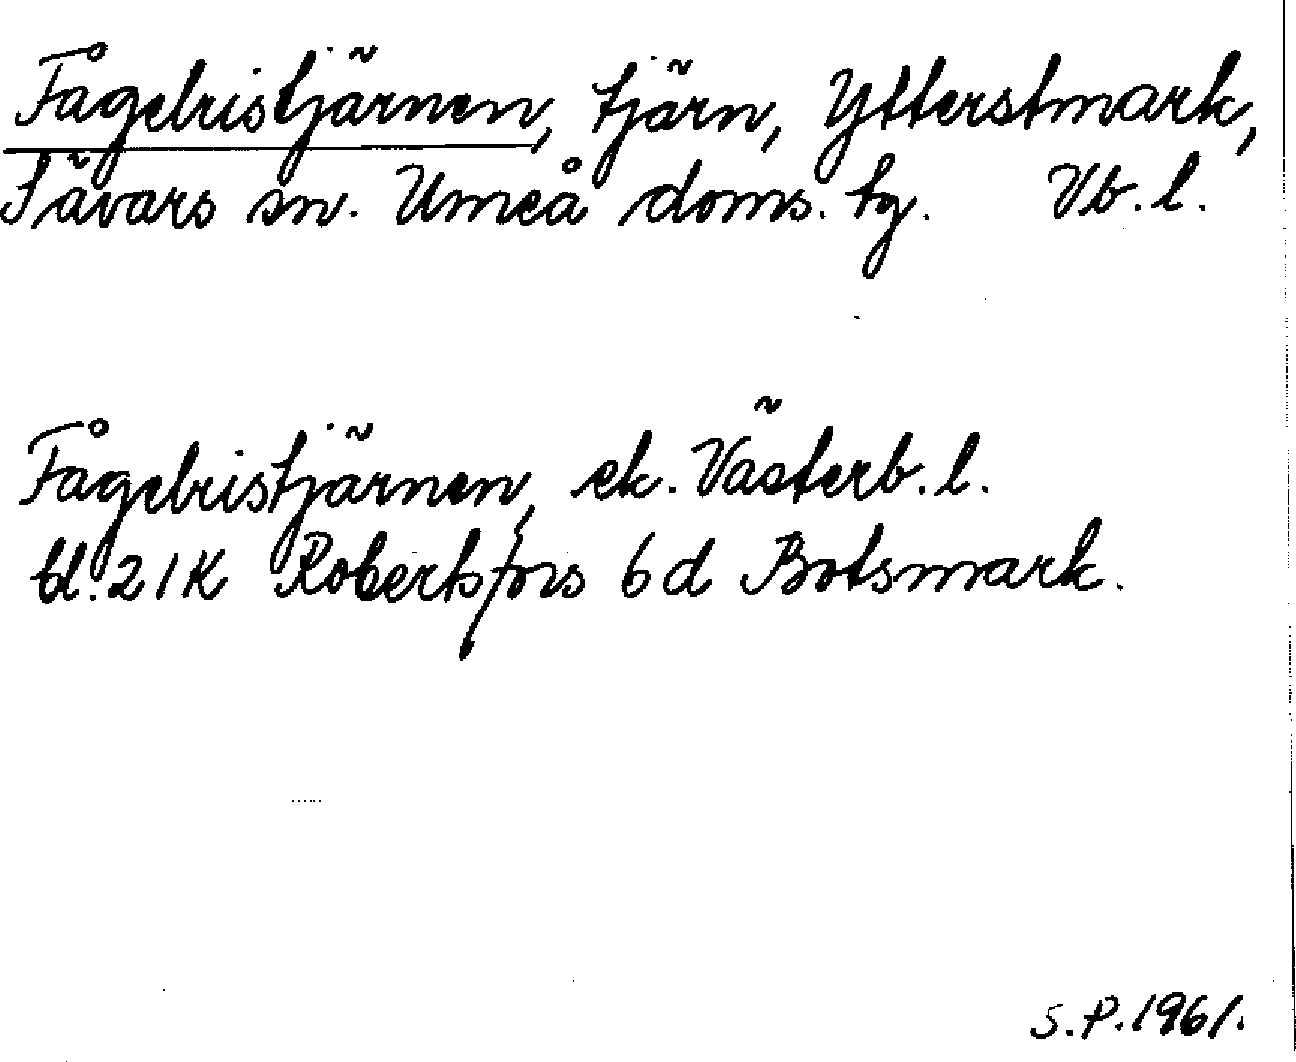 Fågelristjärnen, tjärn, Ytterstmark,
Sävars sn. Umeå doms. tg. Vb. l.
Fågelristjärnen, ek. Västerb. l.
bl. 21K Robertsfors 6d Botsmark.
S.P. 1961.